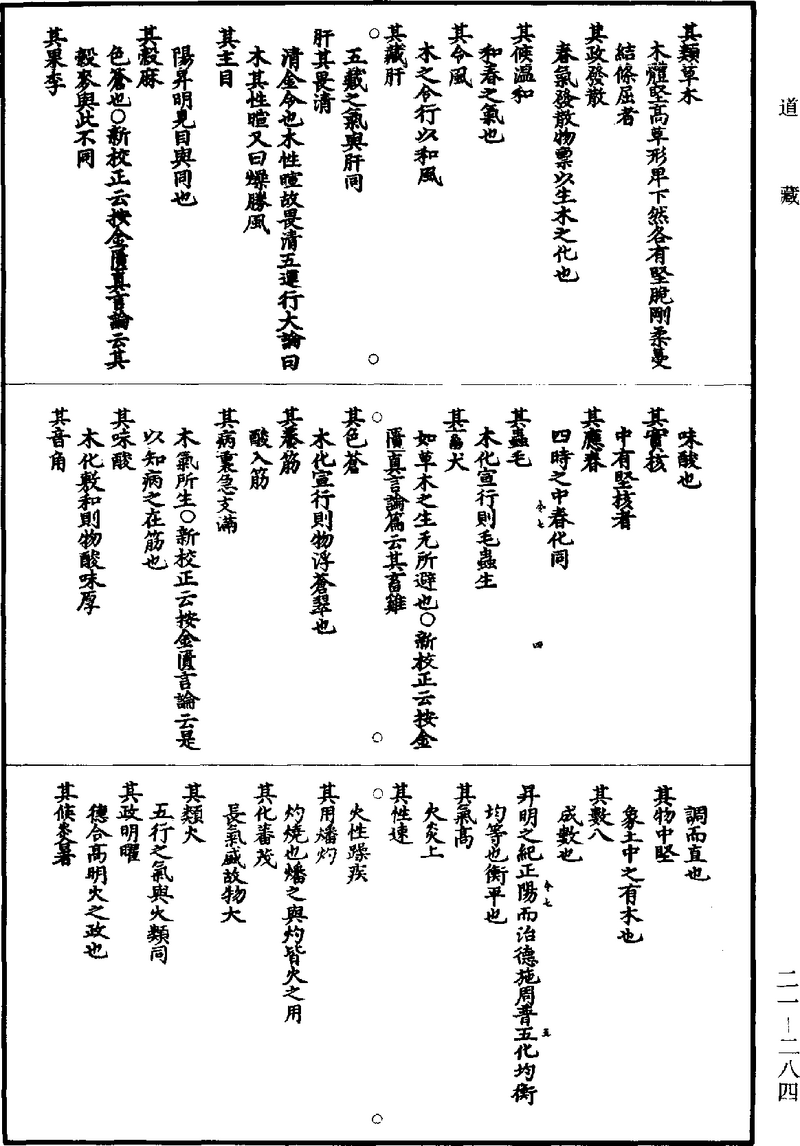 道藏
其類草木
木體堅高草形卑下然各有堅脆剛柔蔓
結條屈者
其政發散
春氣發散物稟以生木之化也
其候溫和
和春之氣也
其令風
木之令行以和風
其藏肝
五藏之氣與肝同
肝其畏清
清金令也木性暄故畏清五運行大論曰
木其性暄又曰燥勝風
其主目
陽昇明見目與同也
其穀麻
色蒼也○新校正云按金匱真言論云其
穀麥與此不同
其果李
味酸也
其實核
中有堅核者
其應春
四時之中春化同
令七
四
其蟲毛
木化宣行則毛蟲生
其畜犬
如草木之生无所避也○新校正云按金
匱真言論篇云其畜雞
其色蒼
木化宣行則物浮蒼翠也
其養筋
酸入筋
其病裏急支滿
木氣所生○新校正云按金匱言論云是
以知病之在筋也
其味酸
木化敷和則物酸味厚
其音角
調而直也
其物中堅
象土中之有木也
其數八
成數也
令七
五
昇明之紀正陽而治德施周普五化均衡
均等也衡平也
其氣高
火炎上
其性速
火性躁疾
其用燔灼
灼燒也燔之與灼皆火之用
其化蕃茂
長氣盛故物大
其類火
五行之氣與火類同
其政明曜
德合高明火之政也
其候炎暑
二一－二八四